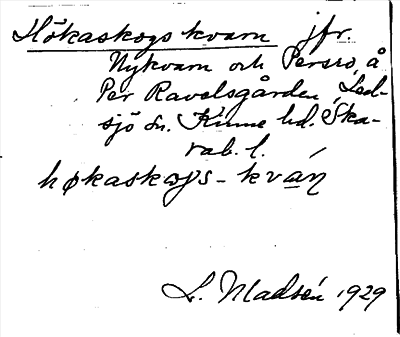 Hökaskogs kvarn jfr.
Nykvarn och Persro, å
Per Ravelsgården, Led-
sjö sn. Kinne hd. Ska-
rab. l.
høkaskogs-kván
L. Madsén 1929